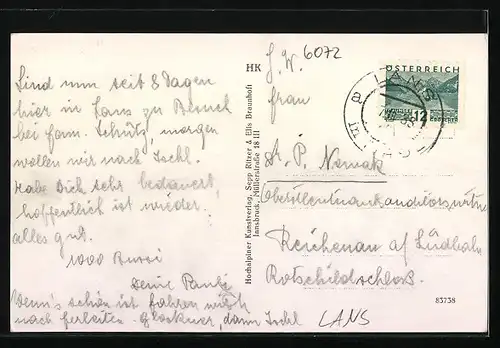 Sind nun seit 8 Tagen
hier in Lans zu Besuch
bei Fam. Schütz, morgen
wollen wir nach Ischl.
Habe Dich sehr bedauert,
hoffentlich ist wieder
alles gut.
1000 Bussi
Deine
Wenn's schön ist fahren wir
nach Ferleiten - Glockner, dann Ischl
HK
Hochalpiner Kunstverlag, Sepp Ritzer & Elis Braunhoff
Innsbruck, Müllerstraße 18 III
6072
ÖSTERREICH
12
GROSCHEN
LANS
Frau
A. P. Nowak
Reichenau a/ Südbahn
Rotschildschloss.
83738
LANS